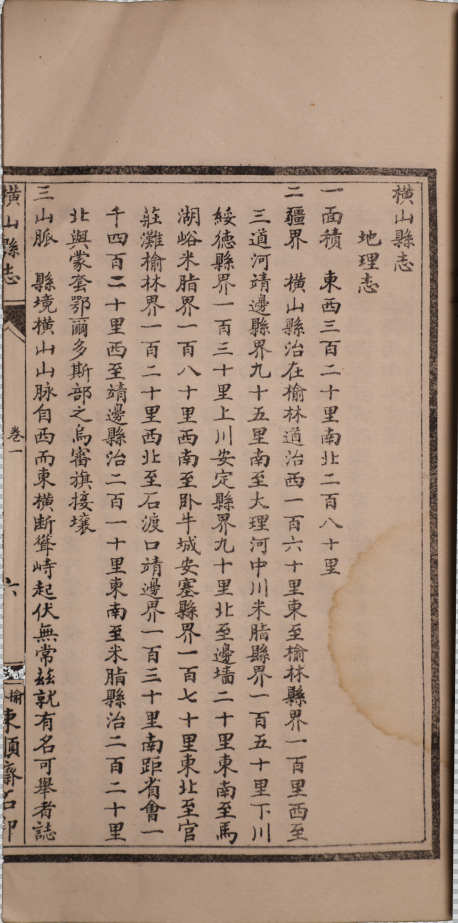 橫山縣志
地理志
一面積　東西三百二十里南北二百八十里
二疆界　橫山縣治在榆林道治西一百六十里東至榆林縣界一百里西至
三道河靖邊縣界九十五里南至大理河中川米脂縣界一百五十里下川
綏德縣界一百三十里上川安定縣界九十里北至邊墻二十里東南至馬
湖峪米脂界一百八十里西南至卧牛城安塞縣界一百七十里東北至官
莊灘榆林界一百二十里西北至石渡口靖邊界一百三十里南距省會一
千四百二十里西至靖邊縣治二百一十里東南至米脂縣治二百二十里
北與蒙套鄂爾多斯部之烏審旗接壤
三山脈　縣境橫山山脉自西而東橫断聳峙起伏無常玆就有名可舉者誌
橫山縣志
卷一
六
榆東順齋石印